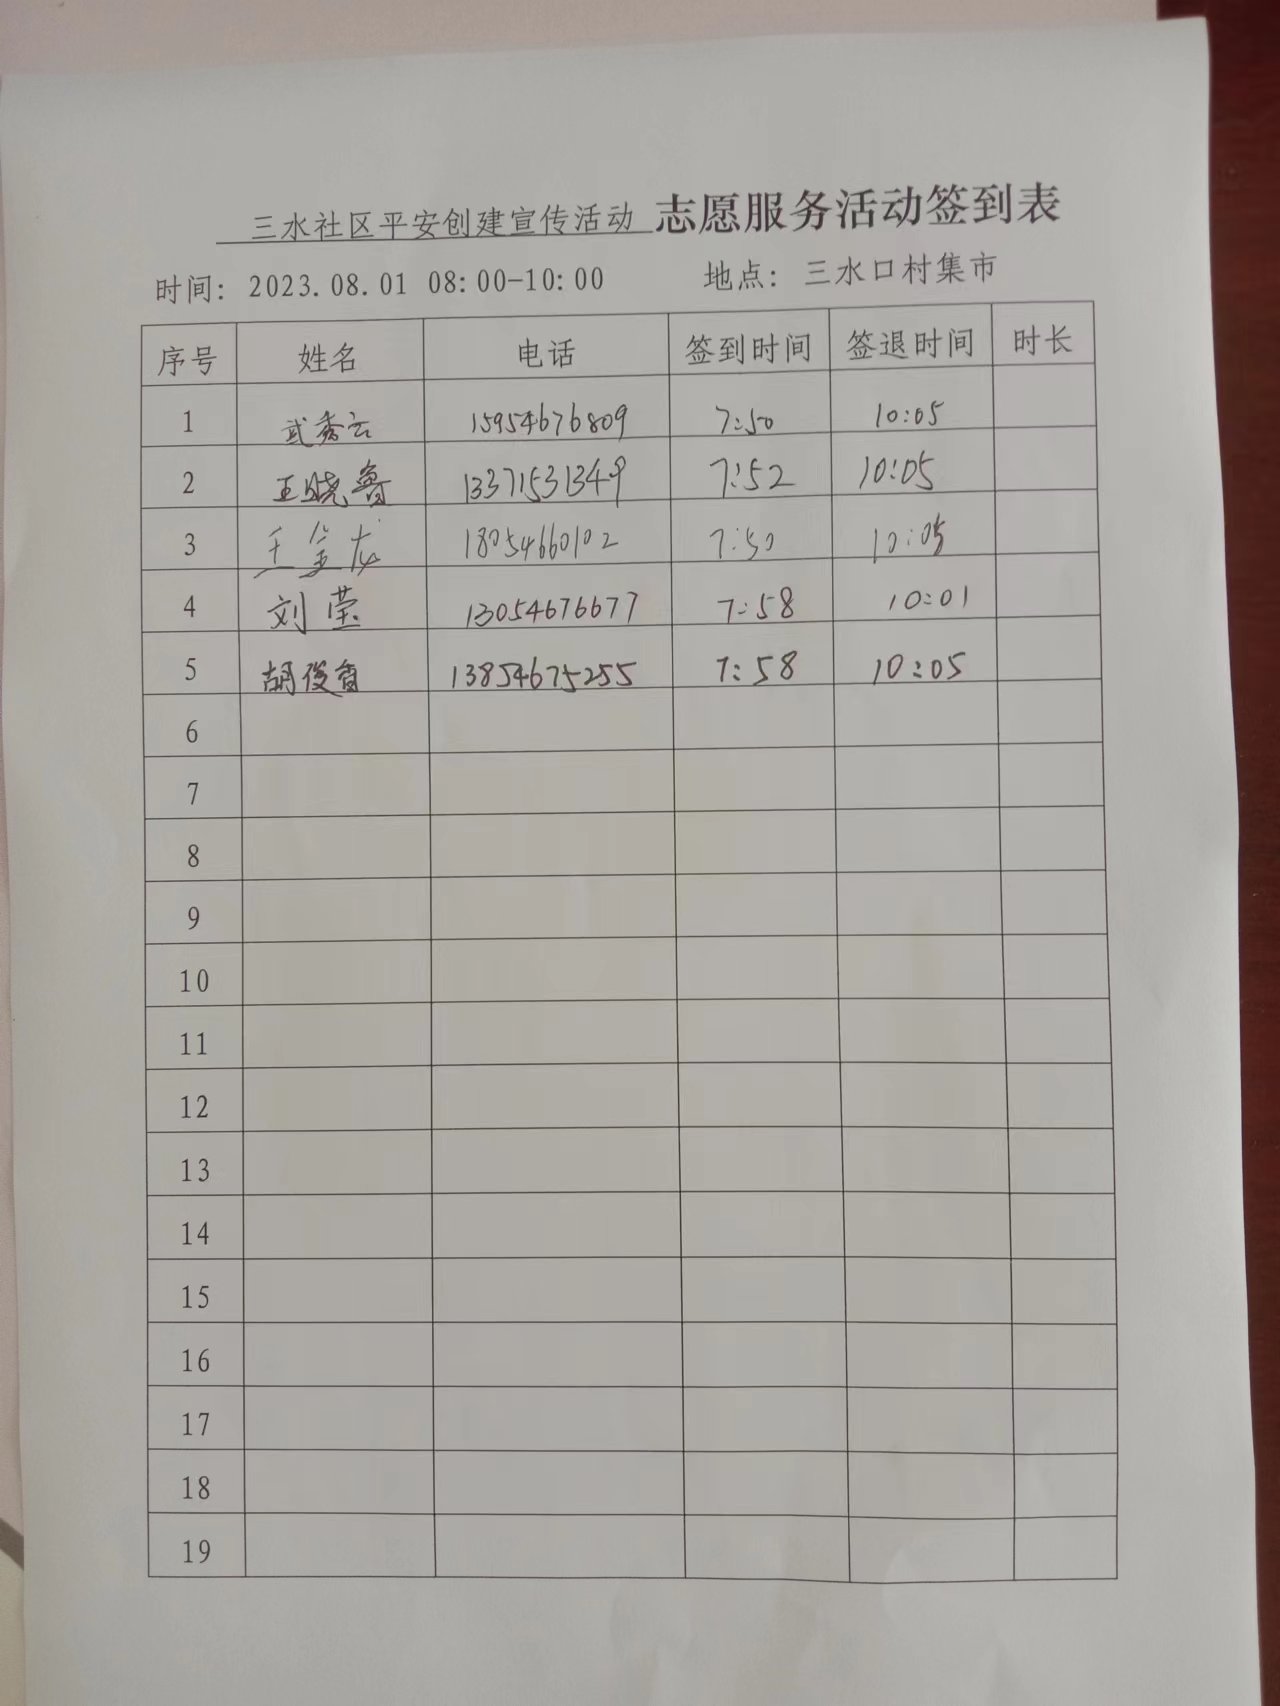 三水社区平安创建宣传活动 志愿服务活动签到表
时间: 2023.08.01 08:00-10:00 地点: 三水口村集市
序号 姓名 电话 签到时间 签退时间 时长
1 武秀云 15954676809 7:50 10:05
2 王晓鲁 13371531349 7:52 10:05
3 王金龙 18054660102 7:50 10:05
4 刘莹 13054676677 7:58 10:01
5 胡俊 13854675255 7:58 10:05
6
7
8
9
10
11
12
13
14
15
16
17
18
19